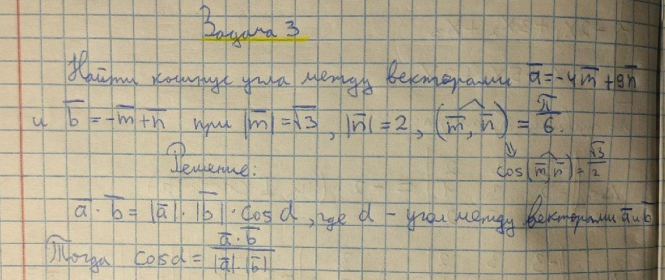 Задача 3
Найти косинус угла между векторами a̅ = -4m̅ + 9n̅
и b̅ = -m̅ + n̅ при |m̅| = √3, |n̅| = 2, (m̅, n̅) = π/6.
Решение:
cos(m̅, n̅) = √3/2
a̅ · b̅ = |a̅| · |b̅| · cos d, где d - угол между векторами a̅ и b̅
Тогда cos d = a̅ · b̅ / |a̅| · |b̅|